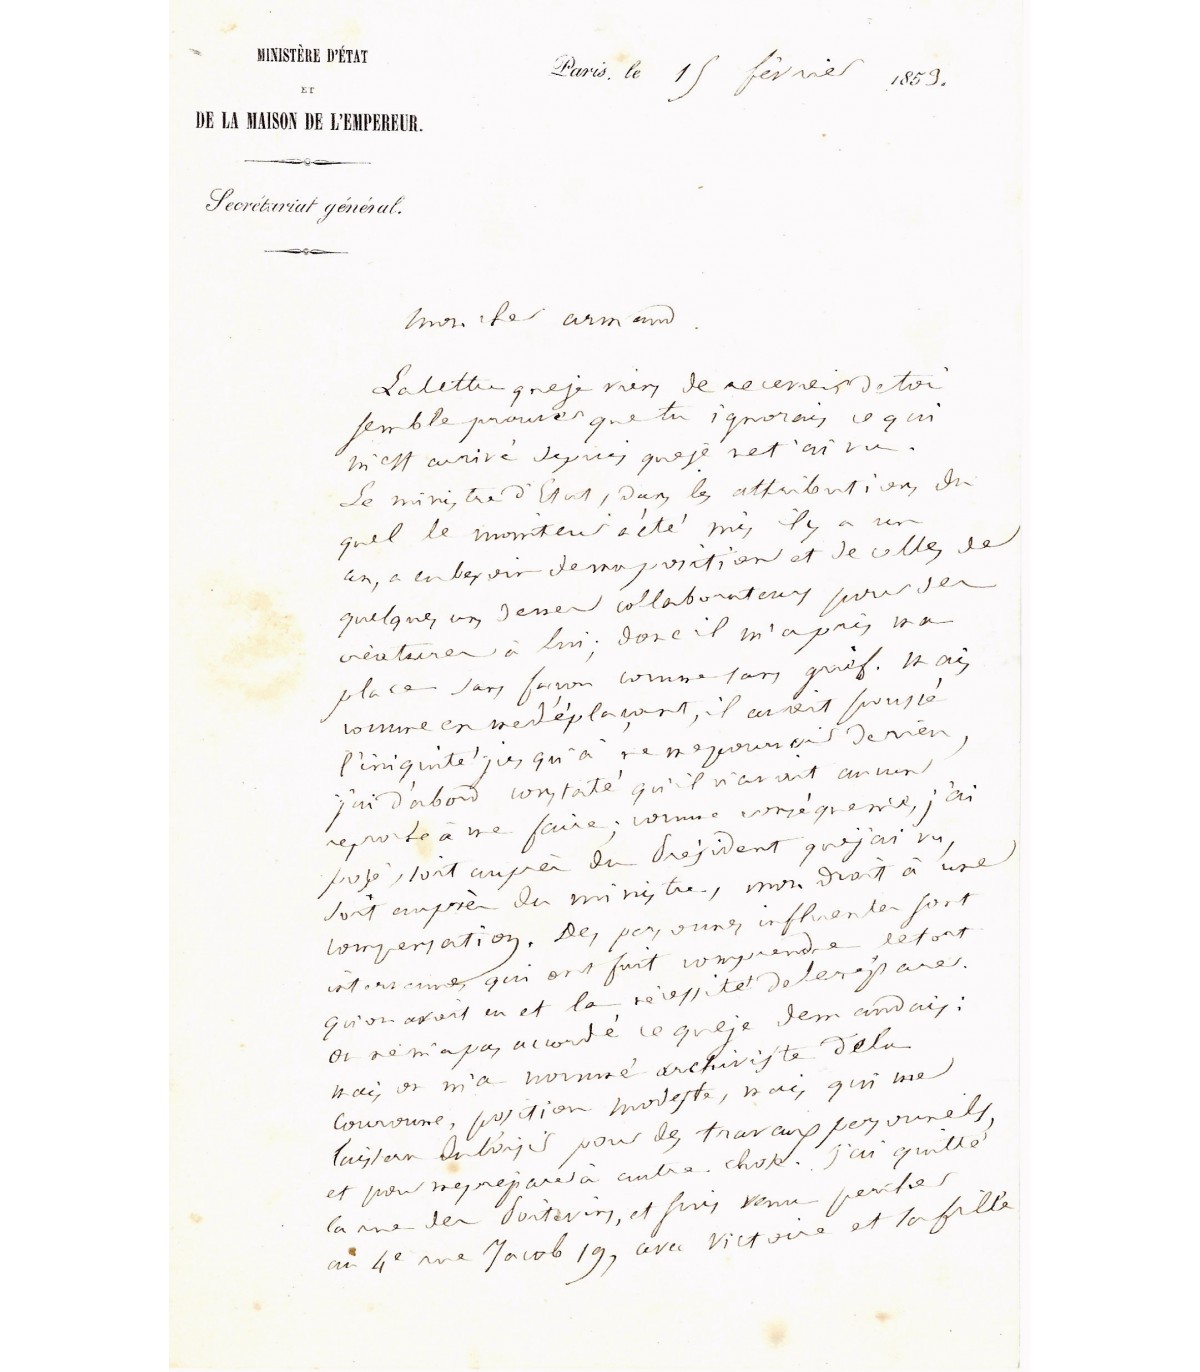 MINISTÈRE D'ÉTAT
ET
DE LA MAISON DE L'EMPEREUR.
Secrétariat général.
Paris, le 15 février 1853.
Mon cher armand.
La lettre que je viens de recevoir de toi
semble prouver que tu ignorais ce qui
m'est arrivé depuis que je ne t'ai vu.
Le ministre d'Etat, dans les attributions du
quel le moniteur a été mis il y a un
an, a eu besoin de ma position et de celles de
quelques uns de mes collaborateurs pour des
créatures à lui; donc il m'a pris ma
place sans façon comme sans grief. mais
comme en me déplaçant, il avait poussé
l'iniquité jusqu'à ne me pourvoir de rien,
j'ai d'abord constaté qu'il n'avait aucun
reproche à me faire; comme conséquence, j'ai
posé, soit auprès du Président que j'ai vu,
soit auprès du ministre, mon droit à une
compensation. Des personnes influentes sont
intervenues qui ont fait comprendre le tort
qu'on avait eu et la nécessité de le réparer.
on ne m'a pas accordé ce que je demandais:
mais on m'a nommé archiviste de la
Couronne, position modeste, mais qui me
laissera du loisir pour des travaux personnels,
et pour me préparer à autre chose. J'ai quitté
la rue des Poitevins, et suis venu percher
au 4e rue Jacob 19, avec Victoire et sa fille